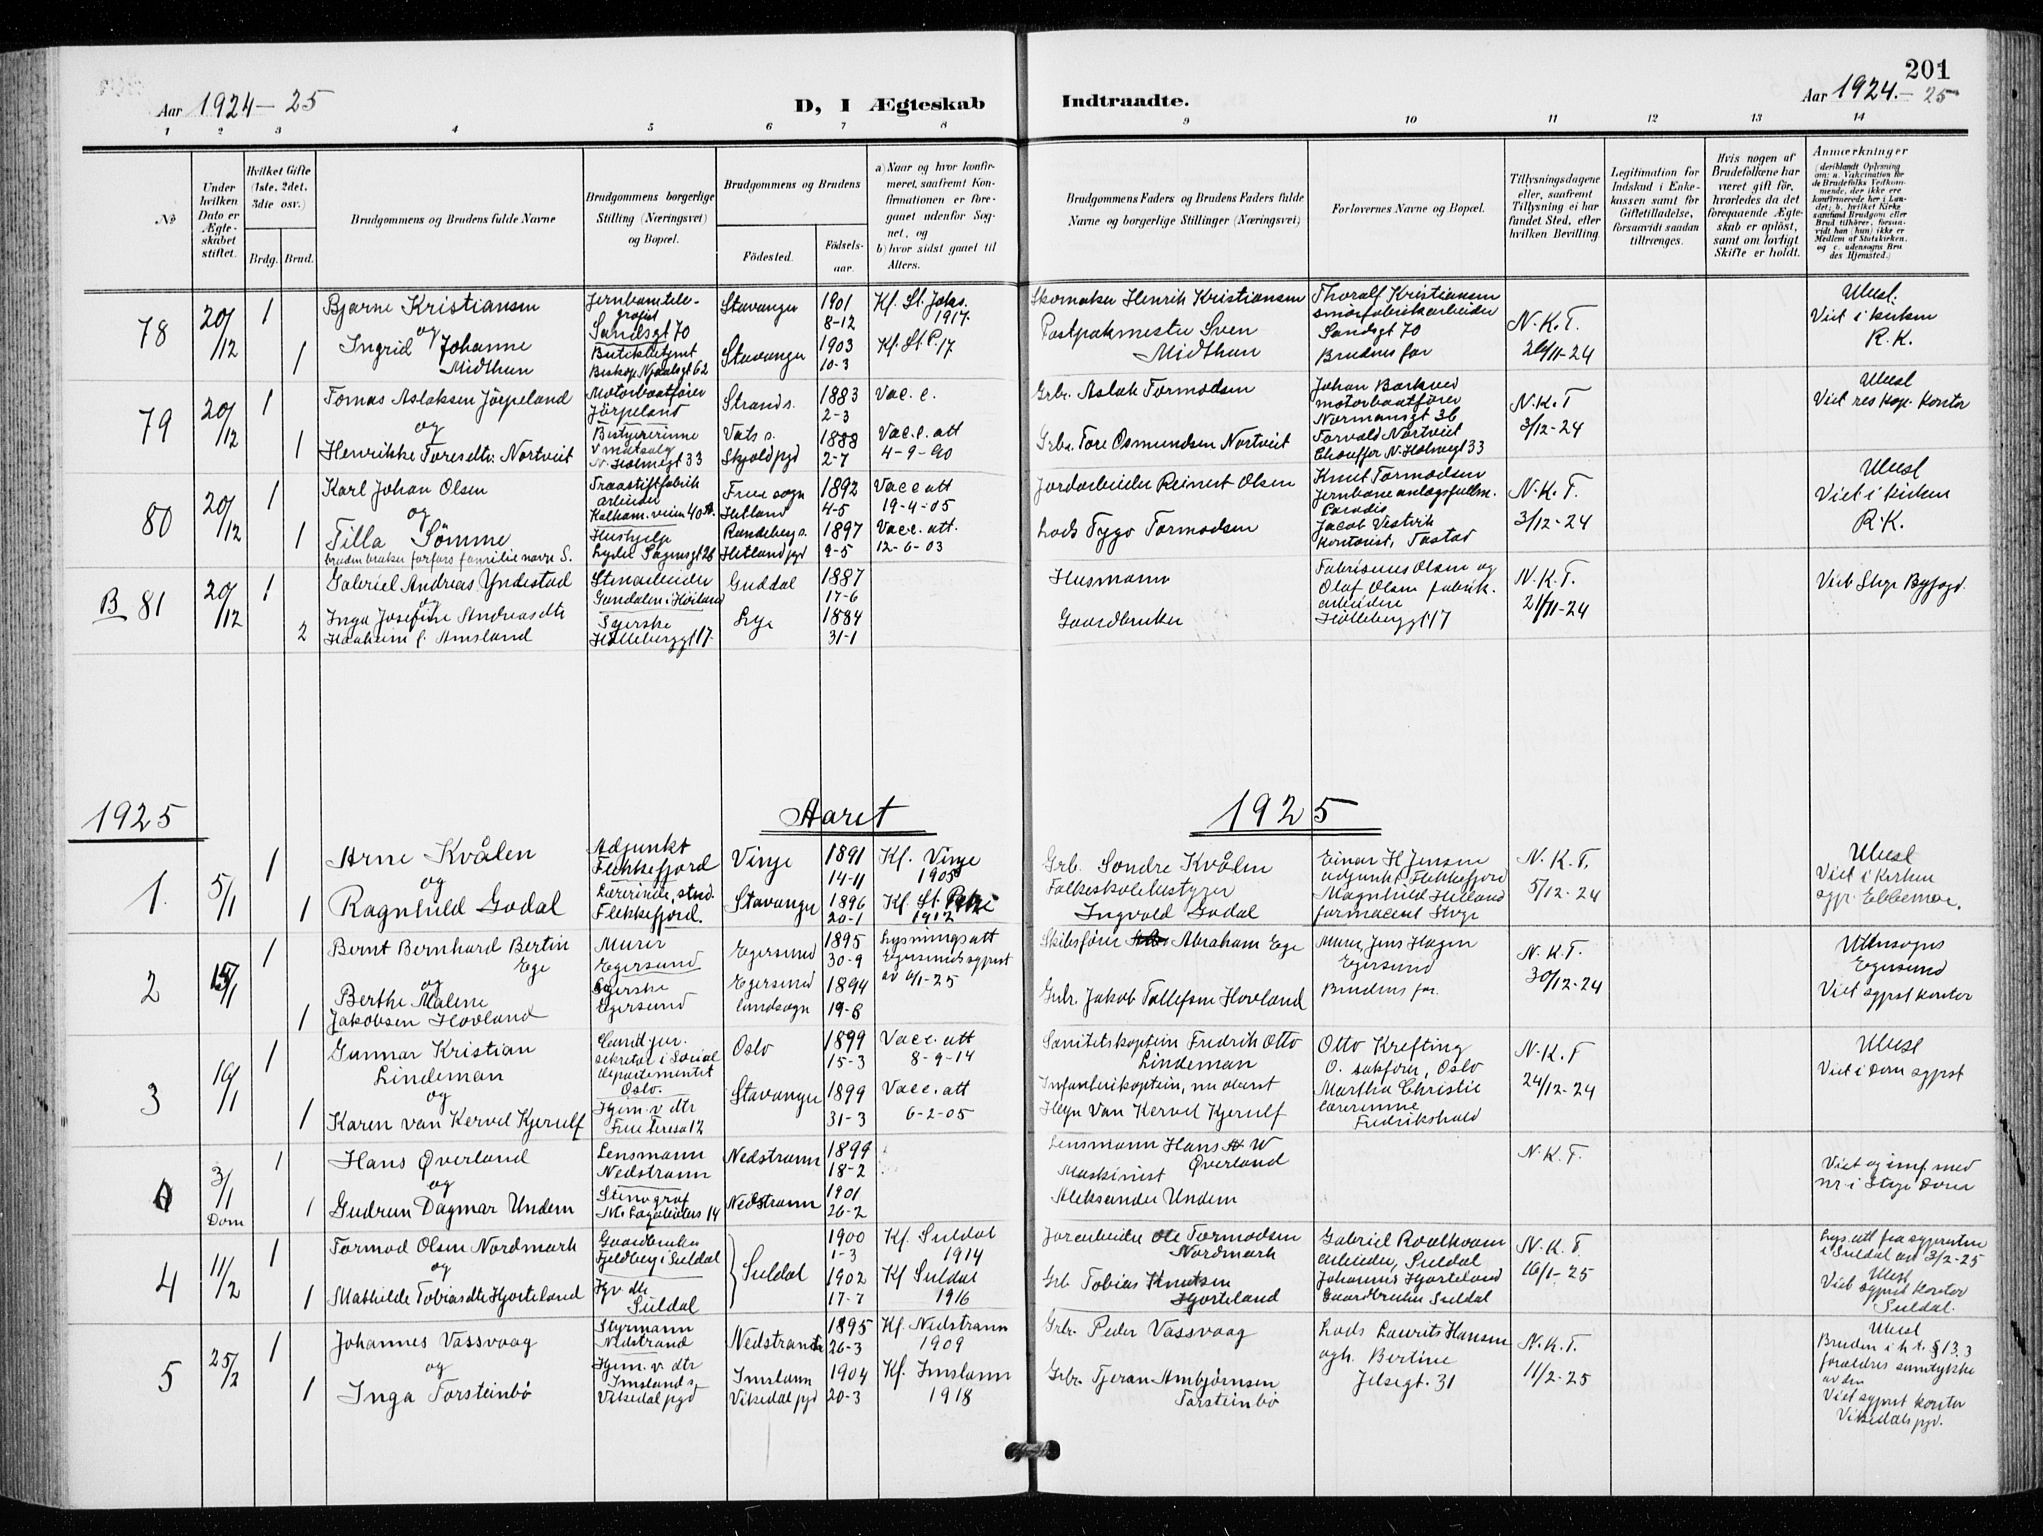 201
Aar 1924-25
D, I Ægteskab
Indtraadte.
Aar 1924.-25
1 2 3 4 5 6 7 8 9 10 11 12 13 14
No
Under hvilken Dato er Ægteskabet stiftet.
Hvilket Gifte (1ste, 2det, 3die osv.)
Brdg. Brud.
Brudgommens og Brudens fulde Navne
Brudgommens borgerlige Stilling (Næringsvei) og Bopæl.
Brudgommens og Brudens
Födested.
Födselsaar.
a) Naar og hvor konfirmeret, saafremt Konfirmationen er foregaaet udenfor Sognet, og
b) hvor sidst gaaet til Alters.
Brudgommens Faders og Brudens Faders fulde Navne og borgerlige Stillinger (Næringsvei)
Forlovernes Navne og Bopæl.
Tillysningsdagene eller, saafremt Tillysning ei har fundet Sted, efter hvilken Bevilling.
Legitimation for Indskud i Enkekassen samt for Giftetilladelse, forsaavidt saadan tiltrænges.
Hvis nogen af Brudefolkene har været gift før, hvorledes da det foregaaende Ægteskab er oplöst, samt om lovligt Skifte er holdt.
Anmærkninger
(deriblandt Oplysning om: a. Vakcination for de Brudefolks Vedkommende, der ikke ere konfirmerede her i Landet; b. hvilket Kirkesamfund Brudgom eller Brud tilhörer, forsaavidt han (hun) ikke er Medlem af Statskirken, og c. udensogns Brudes Hjemsted.)
78 20/12 1 Bjarne Kristiansen Jernbanetelegrafist Sandsgt 70 Stavanger 1901 8-12 Kf. St. Johs. 1917. Skomaker Henrik Kristiansen Thoralf Kristiansen smörfabrikarbeider Sandsgt 70 N.K.T. Viet i kirken R.K.
og
1 Ingrid Johanne Midthun Biskop Njaalsgt 62 Stavanger 1903 10-3 Kf. St. P. 17 Postpakmester Sven Midthun Brudens far
79 20/12 1 Tomas Aslaksen Jörpeland Motorbaatförer Jörpeland Strand s. 1883 2-3 Vac. e. Grbr. Aslak Tormodsen Johan Barkved motorbaatförer Normansgt 36 N.K.T 3/12-24 Viet res kap. kontor
og
1 Henrikke Toresdtr. Nortveit Bestyrerinne v matsalg N. Holmegt 33 Vats s. Skjold pgd 1888 2-7 Vac. e. att 4-9-90 Grbr. Tore Osmundsen Nortveit Torvald Nortveit Chauffør N. Holmegt 33
80 20/12 1 Karl Johan Olsen Traastiftfabrik arbeider Kalham. veien 40 Frue sogn Hetland 1892 4-5 Vacc att 19-4-05 Jordarbeider Reinert Olsen Knut Tormodsen Paradis N.K.T. 3/12-24 Viet i kirken R.K.
og
1 Tilla Sömme Hushjelp Randeberg s. Hetland pgd 1897 9-5 Vacc. att. 12-6-03 Lods Tygo Tormodsen Jacob Vestvik kontorist, Tastad
bruden bruker farfars familie navn S.
B 81 20/12 1 Gabriel Andreas Yndestad Stenarbeider Gandalen i Höiland Guddal 1887 17-6 Husmann Fabrikeier Olsen og Olaf Olsen fabrik. arbeidere N.K.T. 21/11-24 Viet Stvgr Byfogd.
og
2 Inga Josefine Andreasdtr Haaheim f. Amsland Syerske Holleberggt 17. Lye 1884 31-1 Gaardbruker Holleberggt 17
1925
Aaret 1925
1. 5/1 1 Arne Kvålen Adjunkt Flekkefjord Vinje 1891 14-11 Kf. Vinje 1905 Grb. Sondre Kvålen Einar H. Jensen adjunkt Flekkefjord N.K.T. 5/12-24 Viet i kirken
og
1 Ragnhild Godal Lærerinde, stud. Flekkefjord. Stavanger 1896 20-1 Kf. St. Petri 1912 Folkeskolebestyrer Ingvald Godal Magnhild Helland farmaceut Stvgr
2 15/1 1 Bernt Bernhard Bertin Ege Murer Egersund Egersund 1895 30-9 Lysningsatt Egersunds sgprst Skibsförer Abraham Ege Murer Jens Hagen Egersund N.K.T. 30/12-24 Utensogns Egersund
og
1 Berthe Malene Jakobsen Hovland Syerske Egersund Egersund landsogn 1894 19-8 Grbr. Jakob Tollefsen Hovland Brudens far. Viet sgprst kontor
3 10/1 1 Gunnar Kristian Lindeman Cand jur. sekretær i Social departementet Oslo. Oslo 1899 15-3 Vacc. att 8-9-14 Sanitetskaptein Fredrik Otto Lindeman Otto Krefting O. sakförer, Oslo N.K.T 24/12-24 Viet i Dom sgprst
og
1 Karen van Kervel Kjerulf Hjem. v. dtr Frue Teresa 12 Stavanger 1899 31-3 Vacc. att 6-2-05 Infanterikaptein, nu oberst Heyn Van Kervel Kjerulf Martha Christie Lærerinne Fredrikshald
0 3/1 Dom 1 Hans Øverland Lensmann Nedstrann Nedstrann 1899 18-2 Lensmann Hans W Øverland N.K.T. Viet og innf. med nr i Stvgr Dom
og
1 Gudrun Dagmar Undem Stenograf Nedstrann 1901 26-2 Maskinist Aleksander Undem
4 11/2 1 Tormod Olsen Nordmark Gaardbruker Fjeldberg i Suldal Suldal 1900 1-3 Kf. Suldal 1914 Jorarbeider Ole Tormodsen Nordmark Gabriel Roalkvam arbeider, Suldal N.K.T. 16/1-25 Lys. att fra sgpresten i Suldal av 3/2-25
og
1 Mathilde Tobiasdtr Hjorteland Hjv dtr Suldal 1902 17-7 Kf Suldal 1916 Grb Tobias Knutsen Hjorteland Johannes Hjorteland Gaardbruker Suldal Viet sgprst kontor Suldal.
5 25/2 1 Johannes Vassvaag Styrmann Nedstrand Nedstrand 1895 26-3 Kf. Nedstrann 1909 Grbr. Peder Vassvaag Lods Laurits Hansen og h. Bertine N.K.T. 11/2-25 Bruden i h.t. § 13.3 foreldres samtykke
og
1 Inga Torsteinbö Hjem. v. dtr Imsland s. Vikedal pgd Imslann Vikedal pgd 1904 20-3 Kf. Imslann 1918 Grbr. Tjeran Ambjörnsen Torsteinbö Jelsegt. 31 Viet sgprst kontor Vikedals pgd.